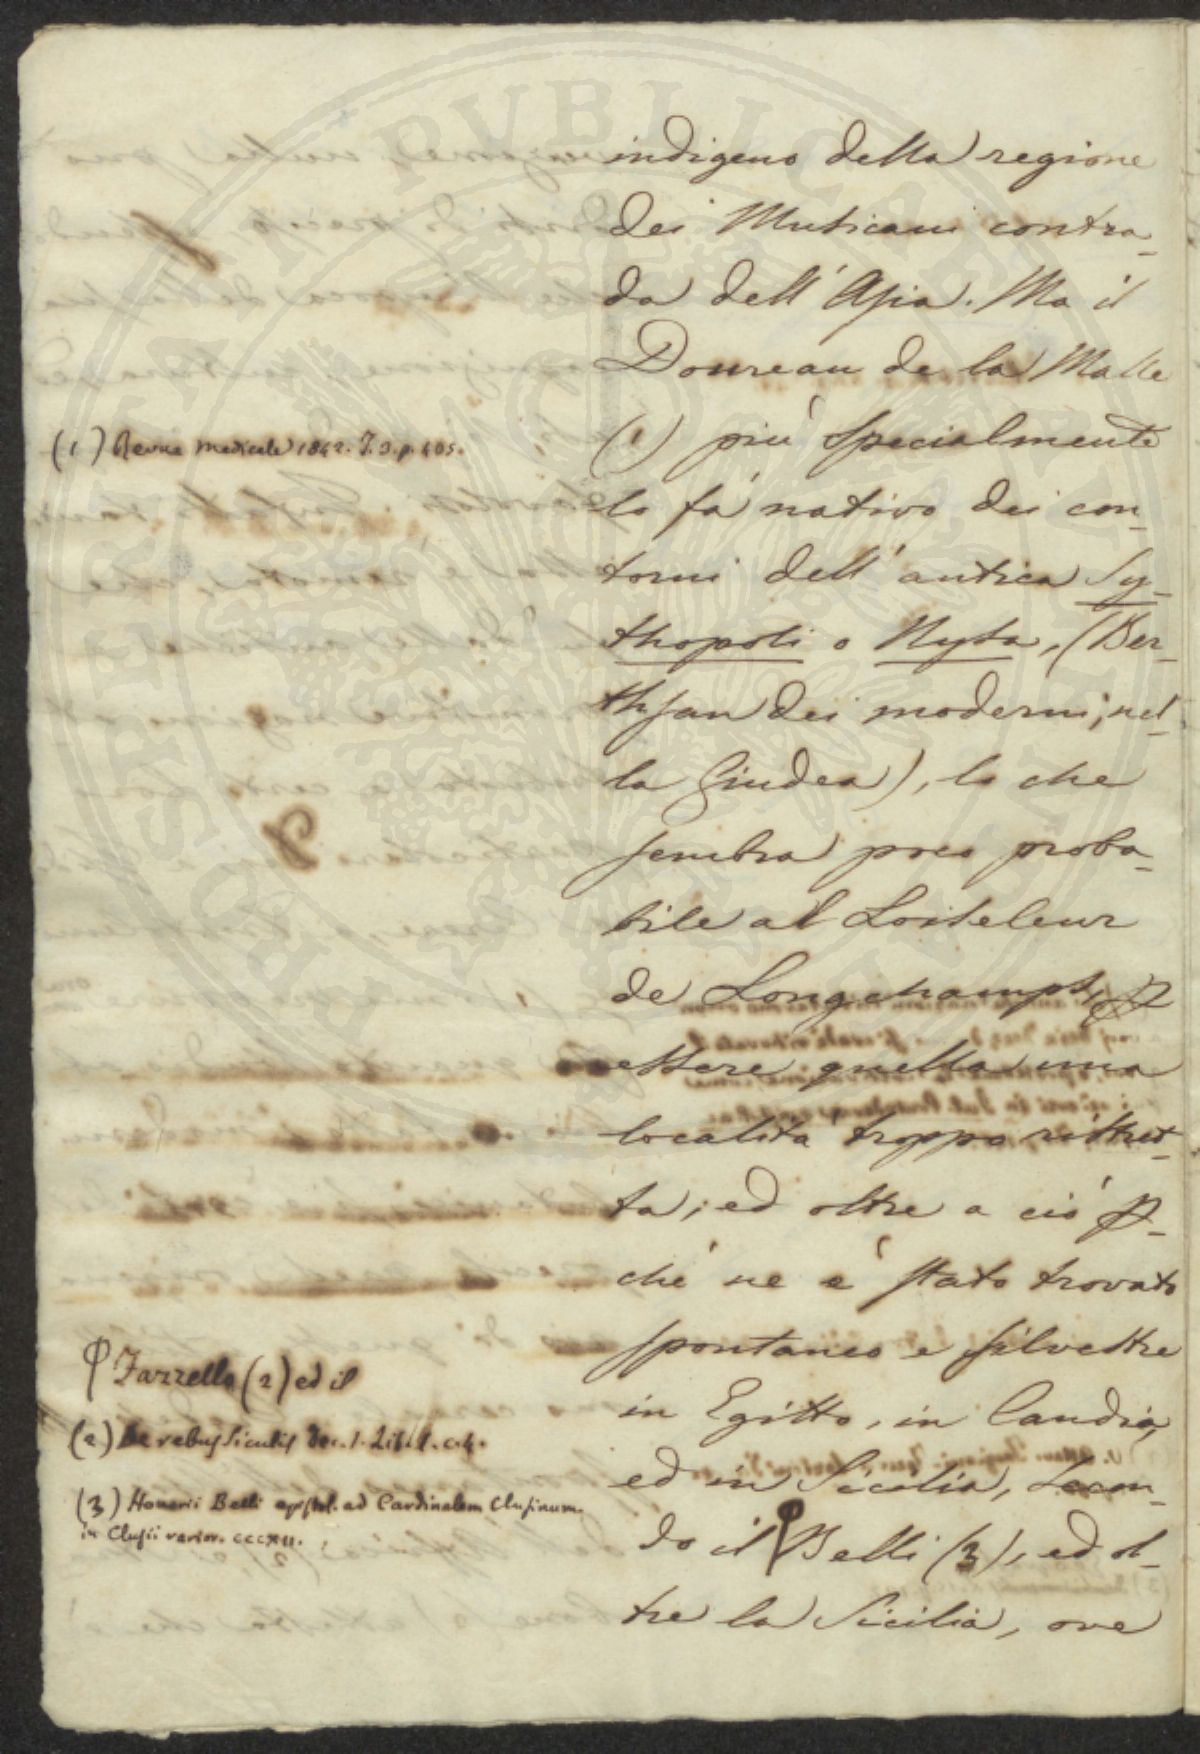 indigeno della regione
dei Musicani contra-
da dell'Asia. Ma il
Doureau de la Malle
(1) più specialmente
lo fà nativo dei con-
torni dell'antica Sy-
thopoli o Nysa, (Ber-
thsan dei moderni, nel-
la Giudea), lo che
sembra poco proba-
bile al Loiseleur
de Longchamps, p
essere quella una
localita troppo ristret-
ta; ed oltre a ciò p-
chè ne è stato trovato
spontaneo e silvestre
in Egitto, in Candia,
ed in Sicilia, secon-
do il Belli (3), ed ol-
tre la Sicilia, ove
(1) Revue medicale 1842. T.3.p.405.
Fazzello (2) ed il
(2) De rebus Siculis dec. 1. Lib. 1. c.4.
(3) Honorii Belli epistol. ad Cardinalem Clusinum.
in Clusii varior. cccXII.
PROSPERITATI PVBLICAE AVGENDAE